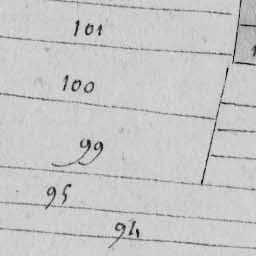 101
100
99
95
94